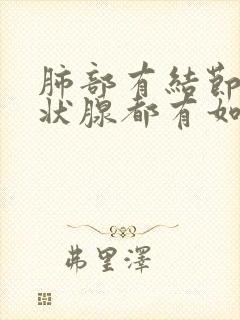 肺部有結節
状腺都有如
弗里澤